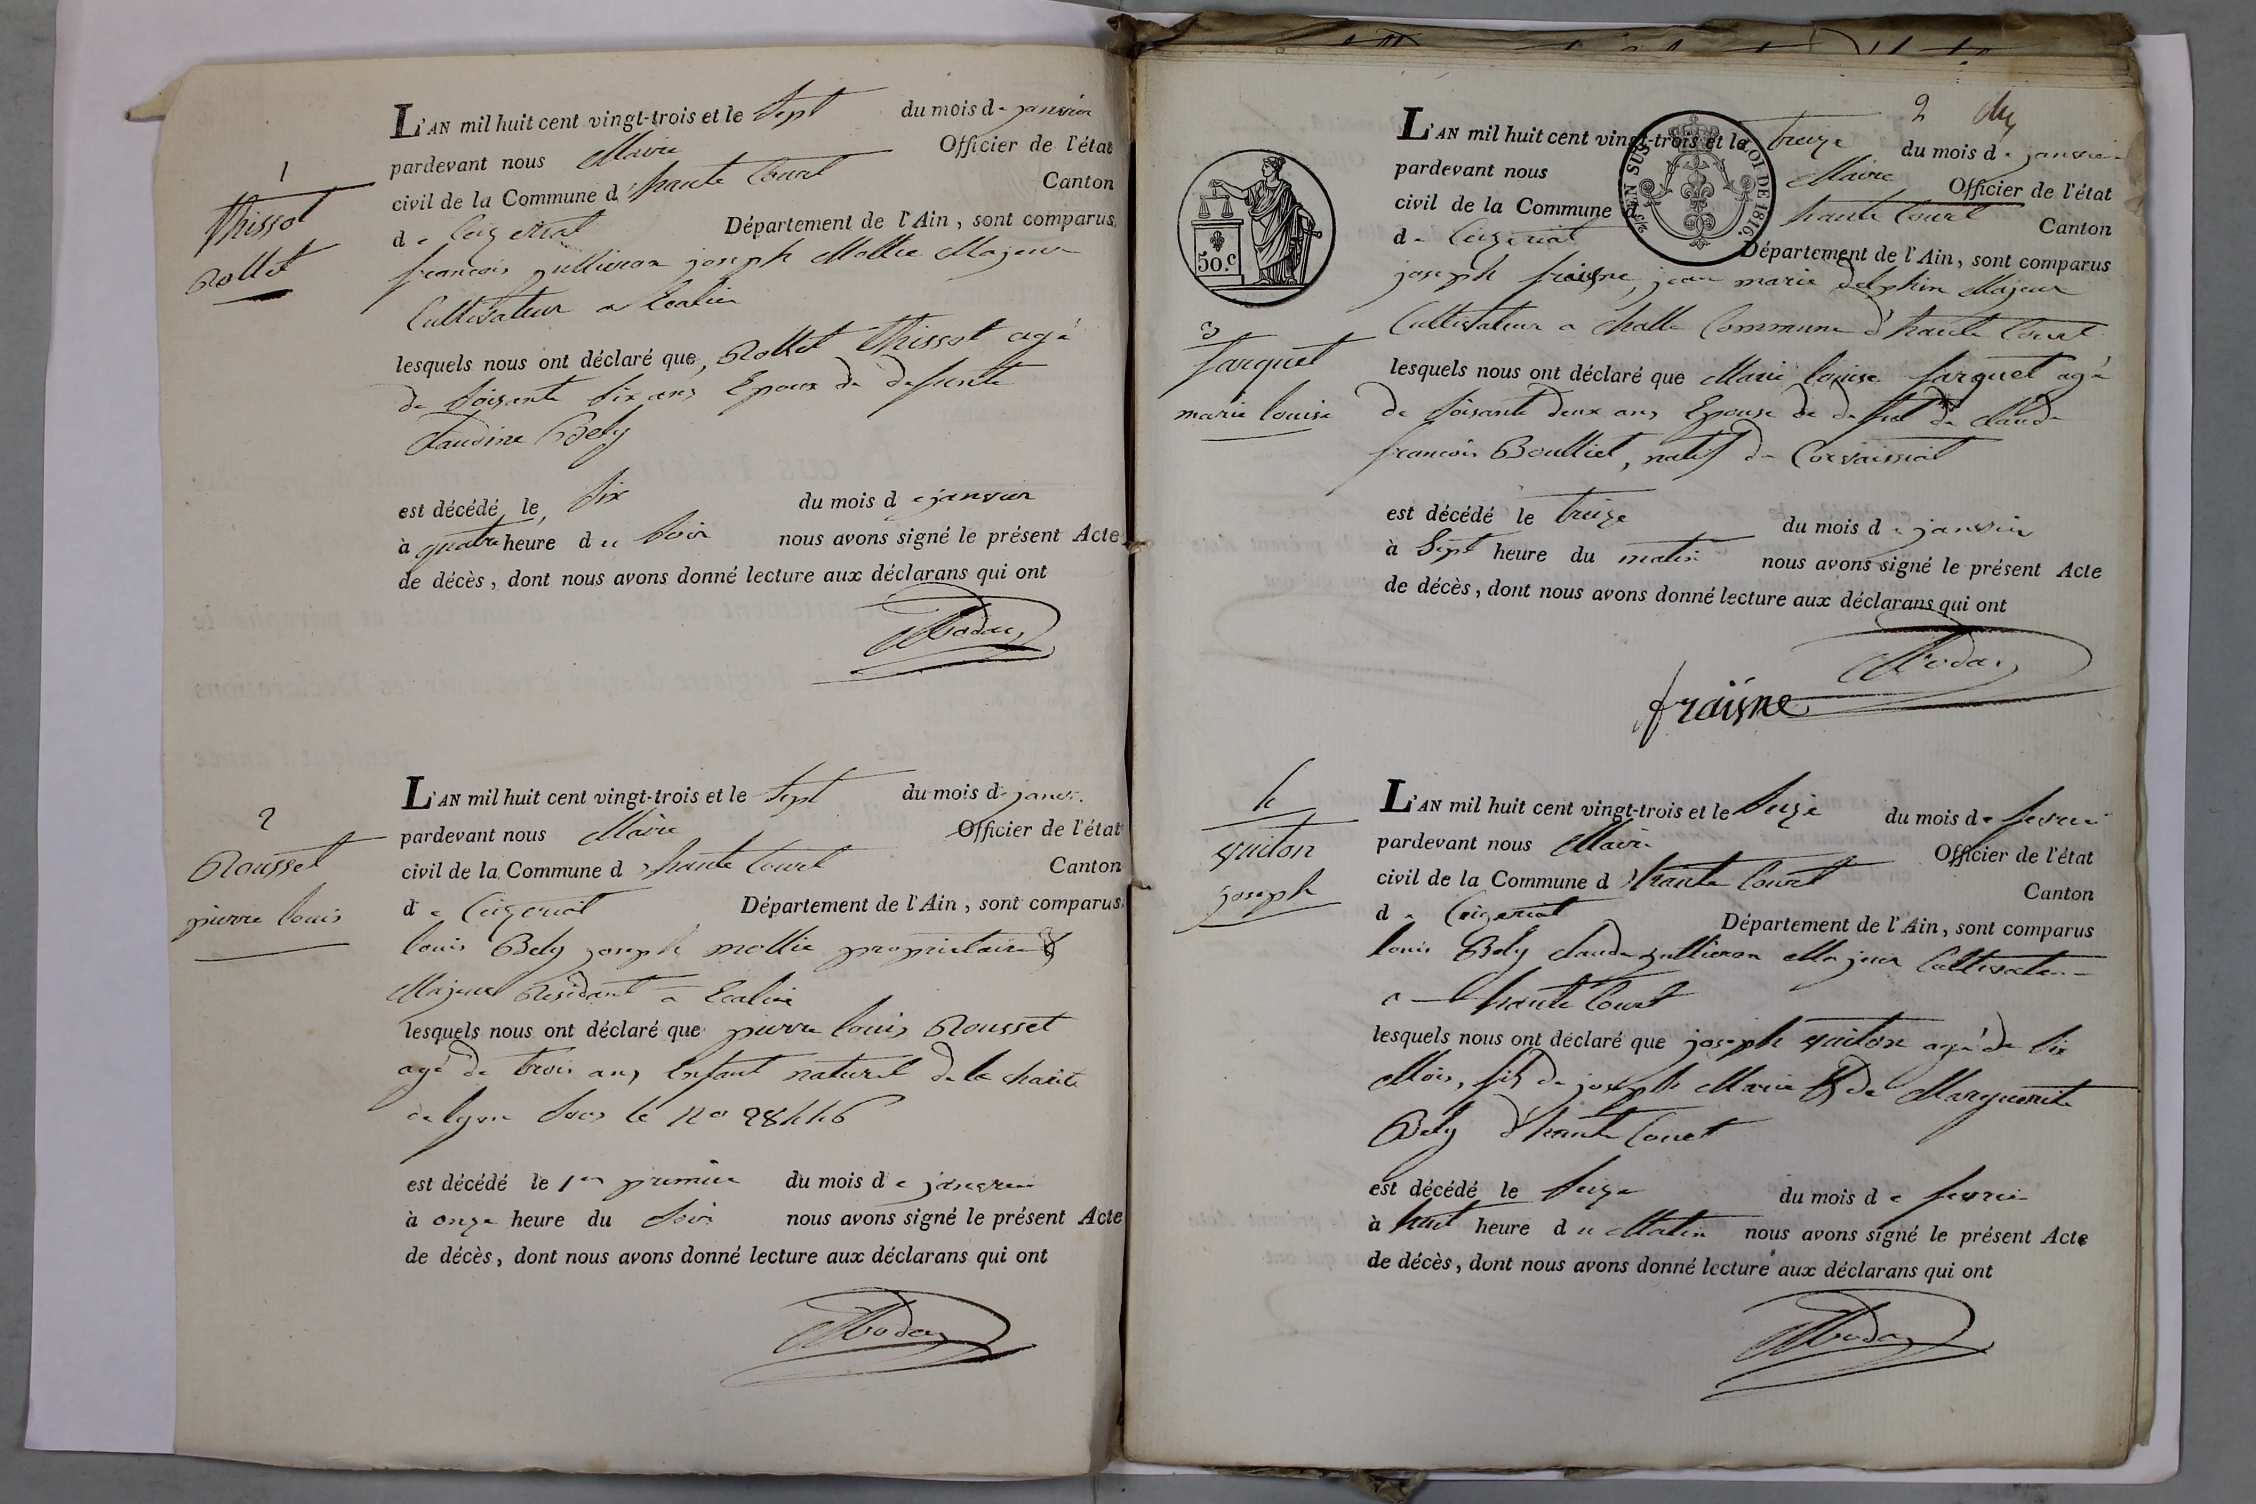 1
Thissot
Rollet
L'AN mil huit cent vingt-trois et le Sept du mois de janvier
pardevant nous Maire Officier de l'état
civil de la Commune d'haute Court Canton
de Ceizeriat Département de l'Ain, sont comparus
francois jullieron joseph Mollie Majeur
Cultivateur a
lesquels nous ont déclaré que Rollet Thissot agé
de soisante six ans Epoux de defunte
Claudine Bely
est décédé le six du mois de janvier
à quatre heure du soir nous avons signé le présent Acte
de décès, dont nous avons donné lecture aux déclarans qui ont
2
Rousset
pierre louis
L'AN mil huit cent vingt-trois et le Sept du mois de janvr.
pardevant nous Maire Officier de l'état
civil de la Commune d'haute Court Canton
de Ceizeriat Département de l'Ain, sont comparus
louis Bely joseph mollie proprietaire &
Majeur Residant a
lesquels nous ont déclaré que pierre louis Rousset
agé de trois ans Enfant naturel de la charité
de lyon sous le no
est décédé le 1er premier du mois de janvier
à onze heure du soir nous avons signé le présent Acte
de décès, dont nous avons donné lecture aux déclarans qui ont
2
EN SUS LOI DE 1816.
50.c
3
farquet
marie louise
L'AN mil huit cent vingt-trois et le treize du mois de janvier
pardevant nous Maire Officier de l'état
civil de la Commune d'haute Court Canton
de Ceizeriat Département de l'Ain, sont comparus
joseph fraisne, jean marie delphin Majeur
Cultivateur a Challe Commune d'haute Court
lesquels nous ont déclaré que Marie louise farquet agé
de soisante deux ans Epouse de de fut de claude
francois Boulliet, natif de Corvaissiat
est décédé le treize du mois de janvier
à Sept heure du matin nous avons signé le présent Acte
de décès, dont nous avons donné lecture aux déclarans qui ont
fraisne
4
vuiton
joseph
L'AN mil huit cent vingt-trois et le seize du mois de fevrier
pardevant nous Maire Officier de l'état
civil de la Commune d'haute Court Canton
de Ceizeriat Département de l'Ain, sont comparus
louis Bely claude jullieron Majeur Cultivateur
a haute Court
lesquels nous ont déclaré que joseph vuiton agé de six
Mois, fils de joseph Marie & de Marguerite
Bely d'haute Court
est décédé le seize du mois de fevrier
à huit heure du Matin nous avons signé le présent Acte
de décès, dont nous avons donné lecture aux déclarans qui ont